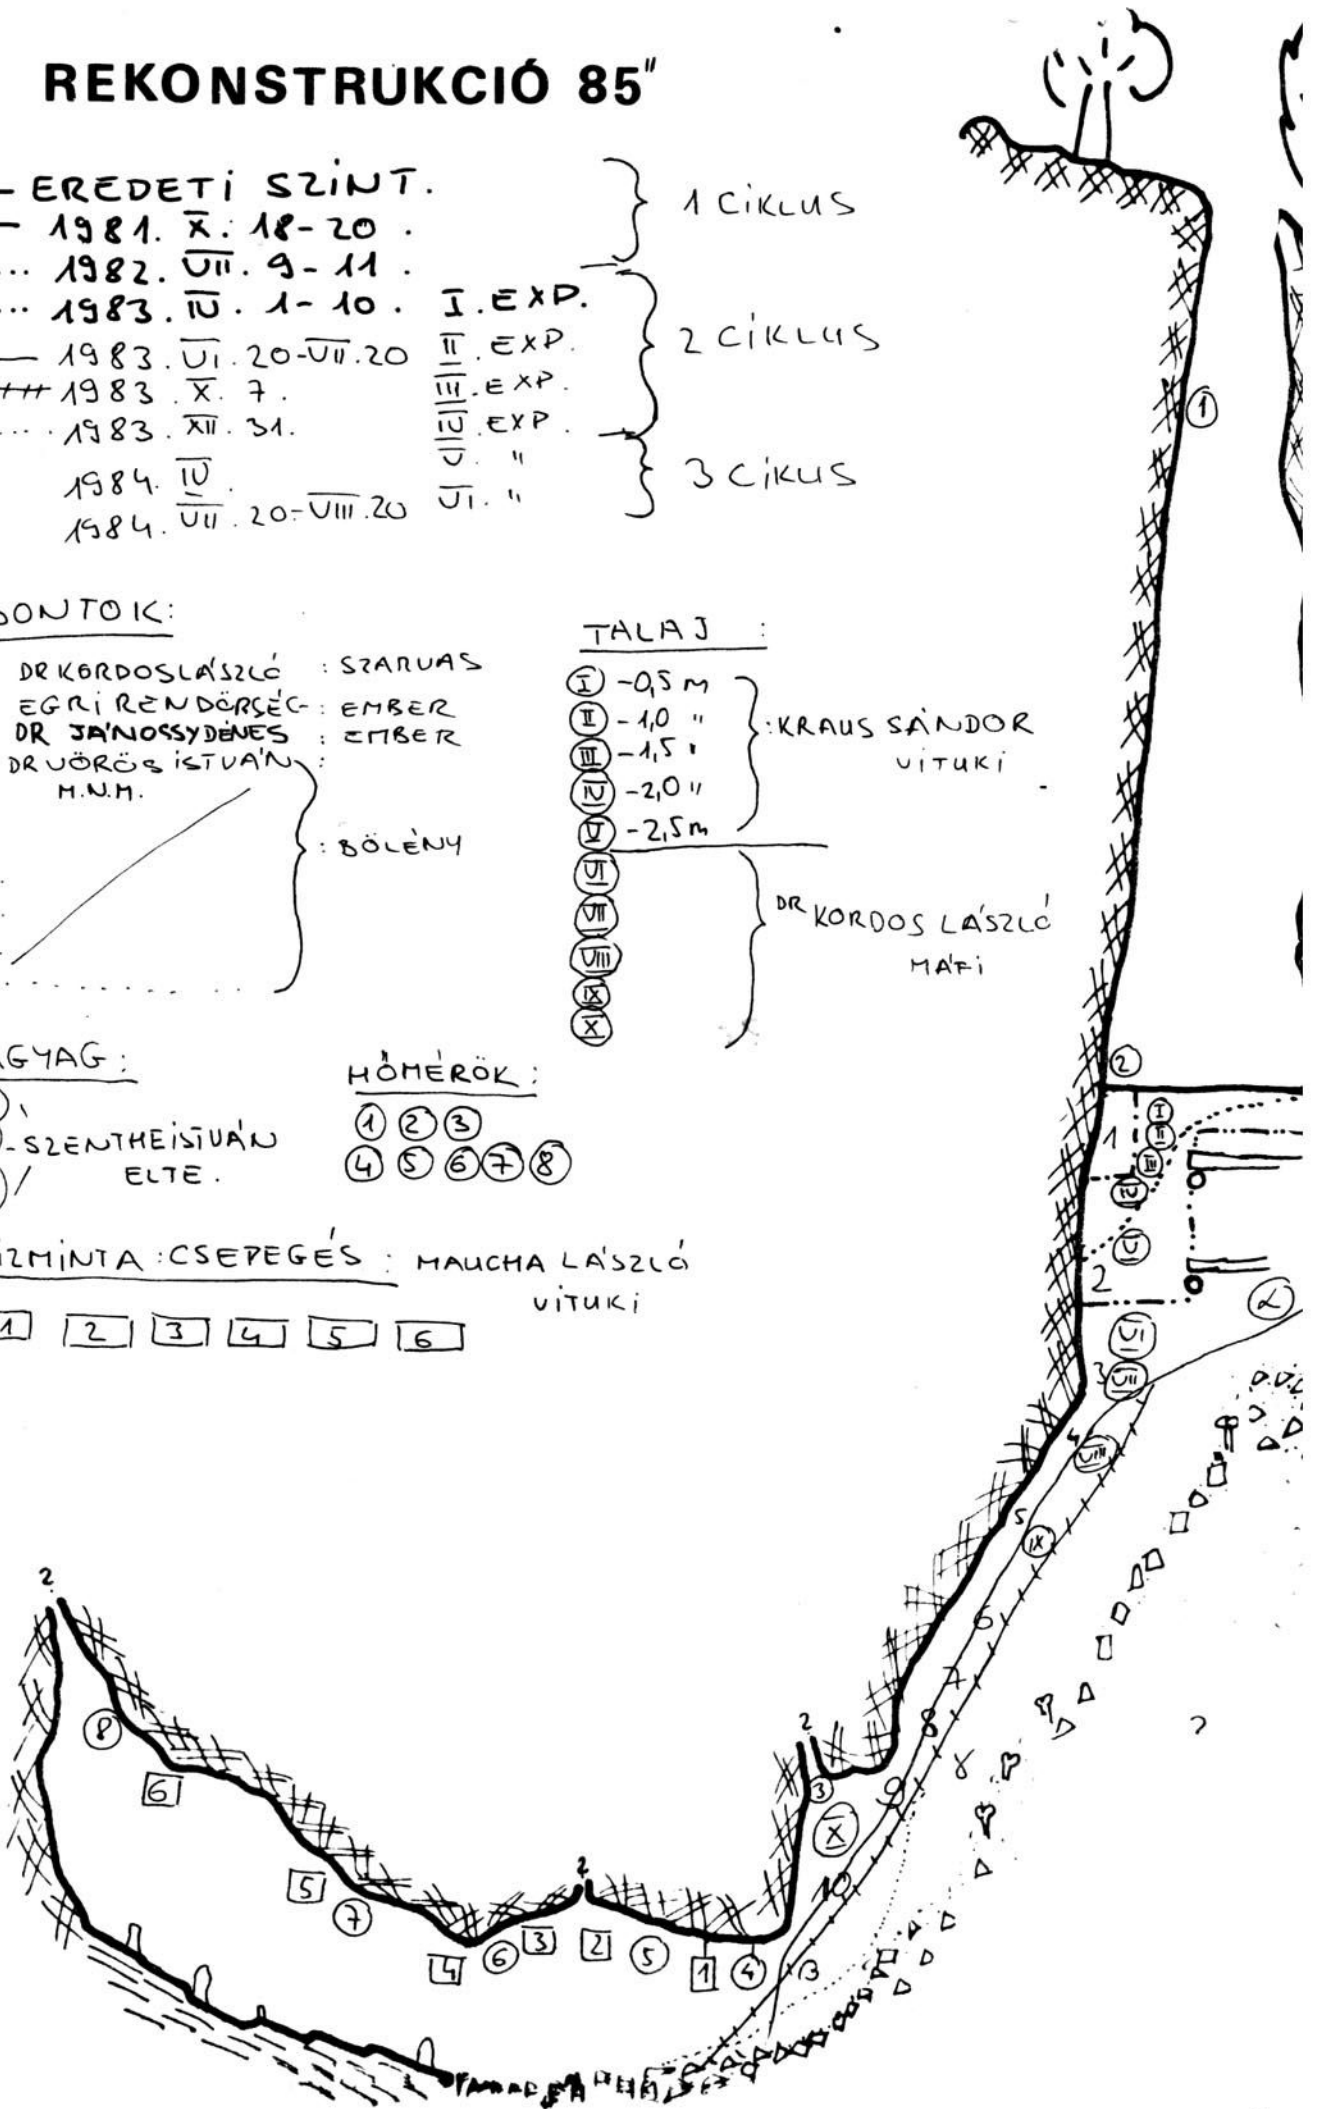 REKONSTRUKCIÓ 85"
- EREDETI SZINT.
- 1981. X. 18-20.
... 1982. VII. 9-11.
... 1983. IV. 1-10. I. EXP.
— 1983. VI. 20-VII. 20 II. EXP.
+++ 1983. X. 7. III. EXP.
.... 1983. XII. 31. IV. EXP.
1984. IV. V. "
1984. VII. 20-VIII. 20 VI. "
1 CIKLUS
2 CIKLUS
3 CIKUS
SONTOK:
DR KORDOS LÁSZLÓ : SZARVAS
EGRI RENDŐRSÉG : EMBER
DR JÁNOSSY DÉNES : EMBER
DR VÖRÖS ISTVÁN :
M.N.M.
: BÖLÉNY
TALAJ :
I -0,5 m
II -1,0 "
III -1,5 "
IV -2,0 "
V -2,5 m
: KRAUS SÁNDOR
VITUKI
VI
VII
VIII
IX
X
DR KORDOS LÁSZLÓ
MÁFI
AGYAG :
- SZENTHE ISTVÁN
ELTE.
HŐMÉRŐK :
1 2 3
4 5 6 7 8
ÍZMINTA : CSEPEGÉS : MAUCHA LÁSZLÓ
VITUKI
1 2 3 4 5 6
1
2
1
I
II
III
IV
V
2
α
VI
3
VII
4
VIII
5
IX
6
7
8
γ
9
3
X
10
β
?
?
8
6
5
7
4
6
3
?
2
5
1
4
?